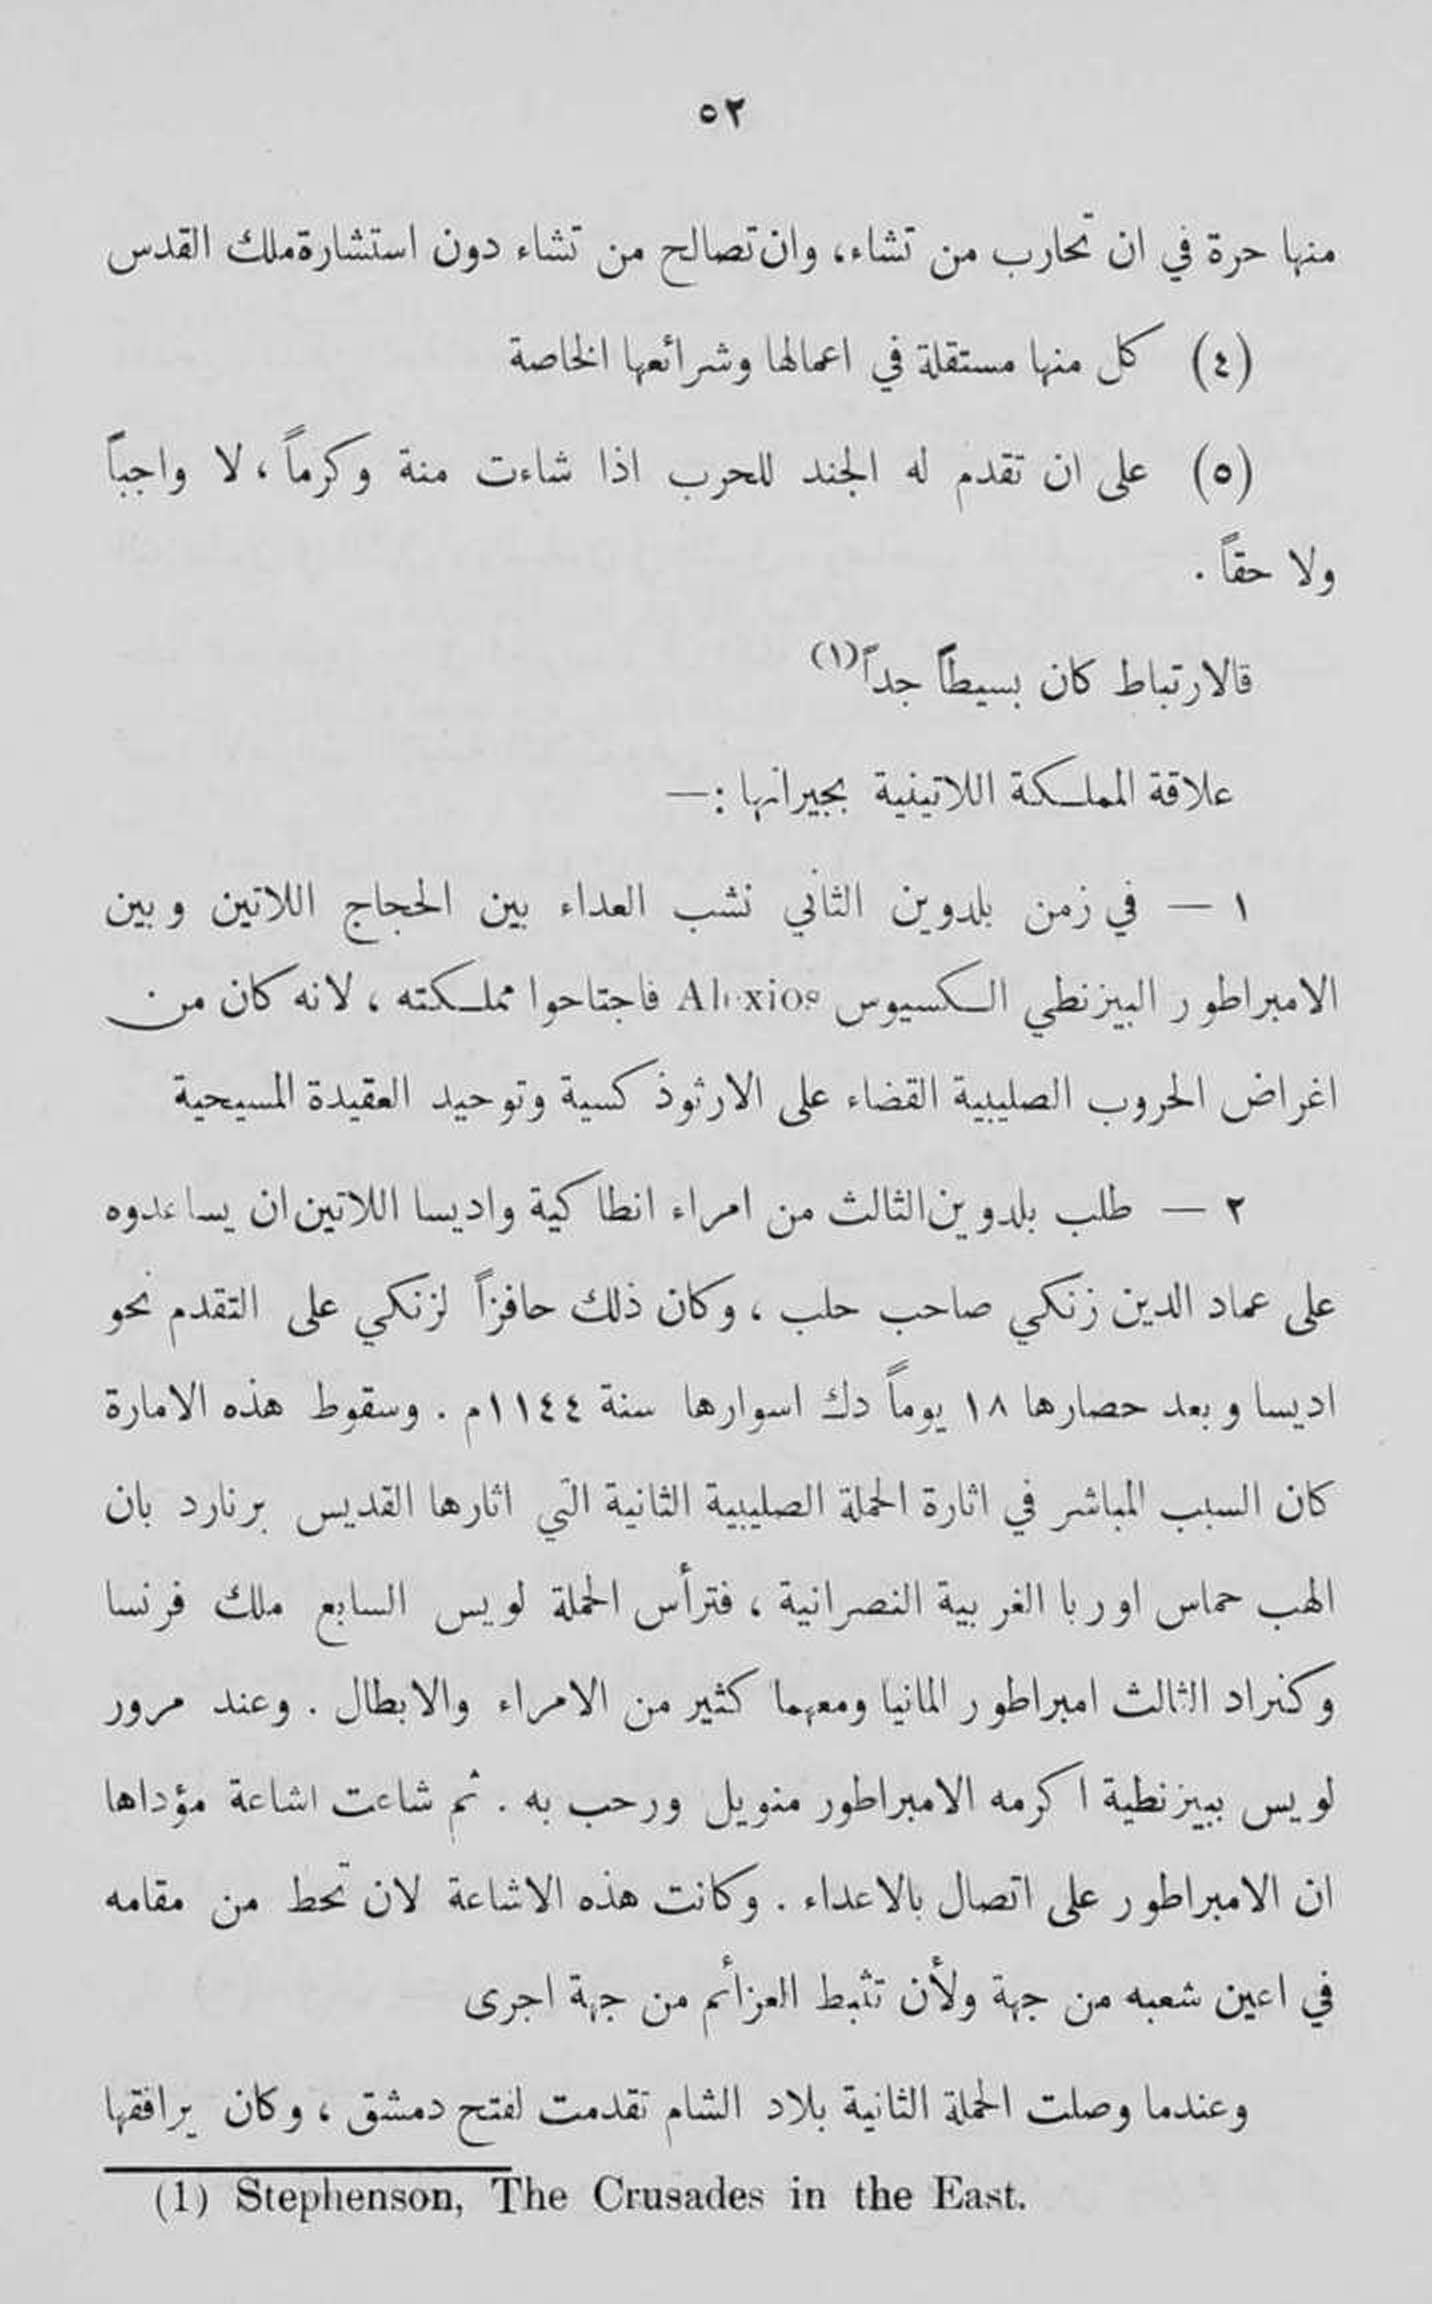 ٥٢
منها حرة في ان تحارب من تشاء، وان تصالح من تشاء دون استشارة ملك القدس
(٤) كل منها مستقلة في اعمالها وشرائعها الخاصة
(٥) على ان تقدم له الجند للحرب اذا شاءت منة وكرماً، لا واجباً
ولا حقاً .
فالارتباط كان بسيطاً جداً(١)
علاقة المملكة اللاتينية بجيرانها :—
١ — في زمن بلدوين الثاني نشب العداء بين الحجاج اللاتين وبين
الامبراطور البيزنطي الكسيوس Alexios فاجتاحوا مملكته ، لانه كان من
اغراض الحروب الصليبية القضاء على الارثوذكسية وتوحيد العقيدة المسيحية
٢ — طلب بلدوين الثالث من امراء انطاكية واديسا اللاتين ان يساعدوه
على عماد الدين زنكي صاحب حلب ، وكان ذلك حافزاً لزنكي على التقدم نحو
اديسا وبعد حصارها ١٨ يوماً دك اسوارها سنة ١١٤٤م . وسقوط هذه الامارة
كان السبب المباشر في اثارة الحملة الصليبية الثانية التي اثارها القديس برنارد بان
الهب حماس اوربا الغربية النصرانية ، فترأس الحملة لويس السابع ملك فرنسا
وكنراد الثالث امبراطور المانيا ومعهما كثير من الامراء والابطال . وعند مرور
لويس ببيزنطية اكرمه الامبراطور منويل ورحب به . ثم شاعت اشاعة مؤداها
ان الامبراطور على اتصال بالاعداء . وكانت هذه الاشاعة لان تحط من مقامه
في اعين شعبه من جهة ولأن تثبط العزائم من جهة اجرى
وعندما وصلت الحملة الثانية بلاد الشام تقدمت لفتح دمشق ، وكان يرافقها
(1) Stephenson, The Crusades in the East.